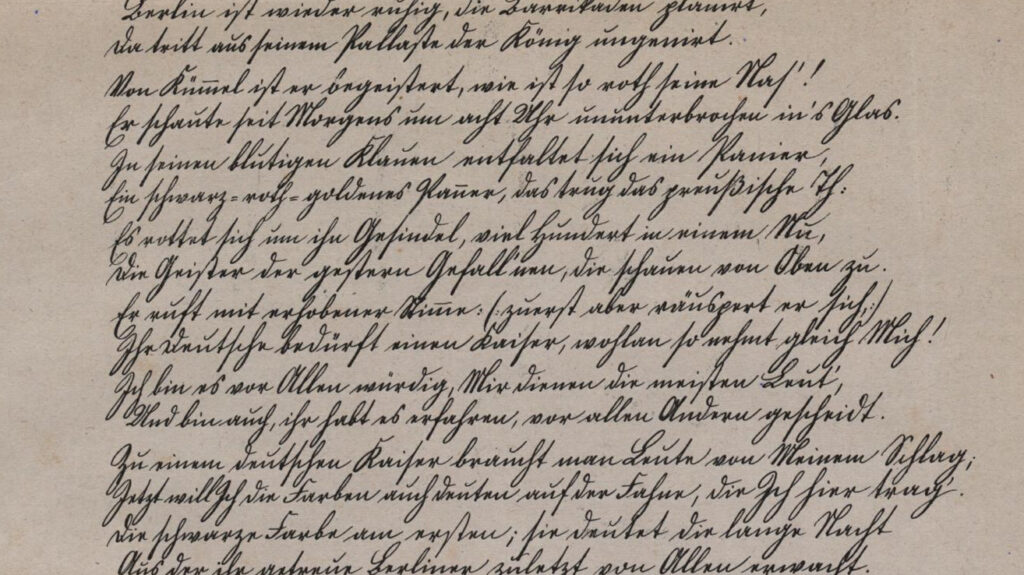 Berlin ist wieder ruhig, die Barrikaden planirt,
Da tritt aus seinem Pallaste der König ungenirt.
Von Küm̄el ist er begeistert, wie ist so roth seine Nas'!
Er schaute seit Morgens um acht Uhr ununterbrochen in's Glas.
In seinen blutigen Klauen entfaltet sich ein Panier,
Ein schwarz=roth=goldenes Pan̄er, das trug das preußische Th:
Es rottet sich um ihn Gesindel, viel Hundert in einem Nu,
Die Geister der gestern Gefall'nen, die schauen von Oben zu.
Er ruft mit erhobener Stim̄e: (: zuerst aber räuspert er sich,:)
Ihr Deutsche bedürft einen Kaiser, wohlan so nehmt gleich Mich!
Ich bin es vor Allen würdig, Mir dienen die meisten Leut',
Und bin auch, ihr habt es erfahren, vor allen Andern gescheidt.
Zu einem deutschen Kaiser braucht man Leute von Meinem Schlag;
Jetzt will Ich die Farben auch deuten auf der Fahne, die Ich hier trag'.
Die schwarze Farbe am ersten; sie deutet die lange Nacht
Aus der ihr getreue Berliner zuletzt von Allen erwacht.